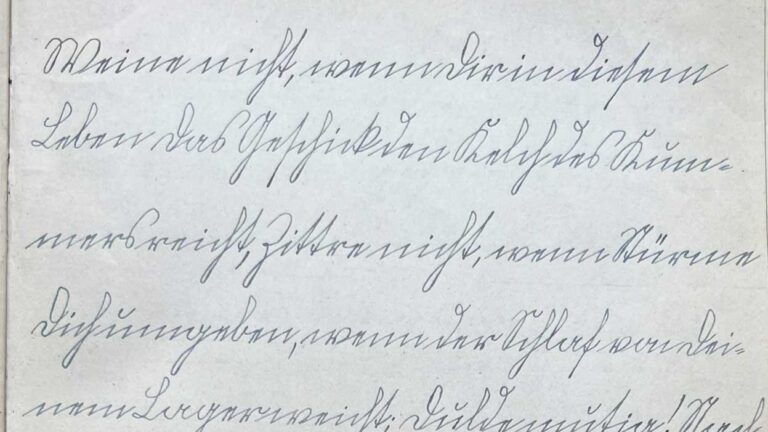 Weine nicht, wenn Dir in diesem
Leben das Geschick den Kelch des Kum-
mers reicht, Zittre nicht, wenn Stürme
Dich umgeben, wenn der Schlaf von Dei-
nem Lager weicht; Dulde mutig!